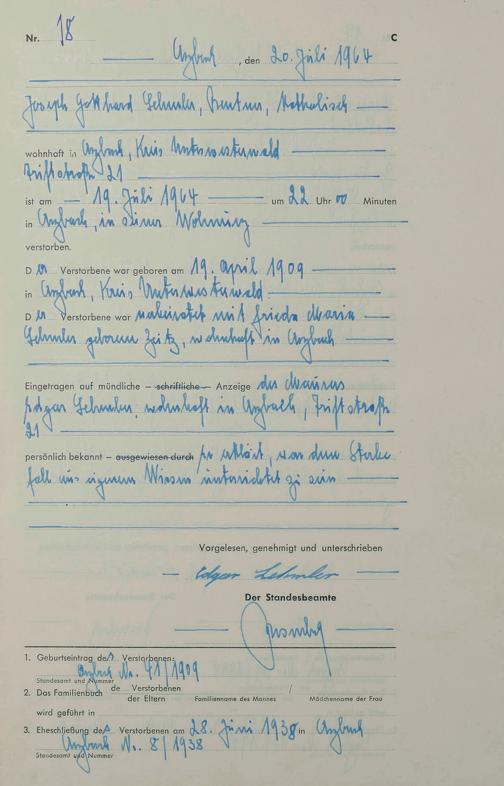 Nr. 18 C
Arzbach, den 20. Juli 1964
Joseph Gotthard Lehmler, Rentner, katholisch
wohnhaft in Arzbach, Kreis Unterwesterwald
Triftstraße 21
ist am 19. Juli 1964 um 22 Uhr 00 Minuten
in Arzbach, in seiner Wohnung
verstorben.
Der Verstorbene war geboren am 19. April 1909
in Arzbach, Kreis Unterwesterwald
Der Verstorbene war verheiratet mit Frieda Maria
Lehmler geborene Zeitz, wohnhaft in Arzbach
Eingetragen auf mündliche – schriftliche – Anzeige des Maurers
Edgar Lehmler, wohnhaft in Arzbach, Triftstraße
21
persönlich bekannt – ausgewiesen durch er erklärt, von dem Sterbe
fall aus eigenem Wissen unterrichtet zu sein
Vorgelesen, genehmigt und unterschrieben
Edgar Lehmler
Der Standesbeamte
1. Geburtseintrag des Verstorbenen:
Arzbach Nr. 41/1909
Standesamt und Nummer
2. Das Familienbuch de Verstorbenen /
der Eltern Familienname des Mannes Mädchenname der Frau
wird geführt in
3. Eheschließung des Verstorbenen am 28. Juni 1938 in Arzbach
Arzbach Nr. 8/1938
Standesamt und Nummer